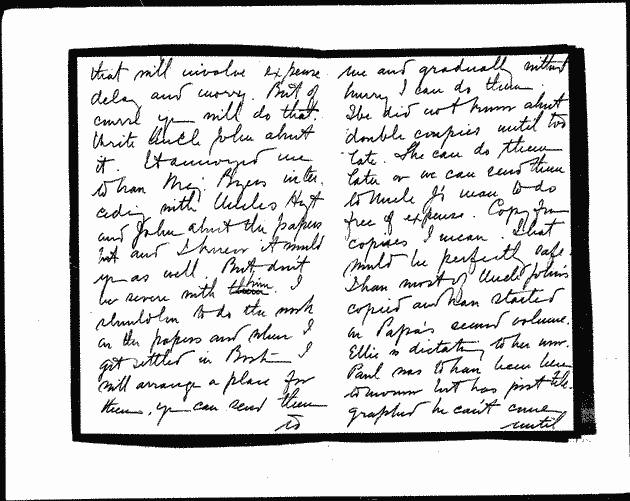 that will involve expense
delay and worry. But of
course you will do that.
Write Uncle John about
it. It annoyed me
to have Mr. Byers inter-
ceding with Uncles Hoyt
and John about the papers
but and I knew it would
you as well. But don't
be severe with him. I
shall to do the work
on the papers and when I
get settled in Boston I
will arrange a place for
them, you can send them
to
me and gradually without
hurry I can do them.
I did not know about
double copies until too
late. She can do them
later or we can send them
to Uncle J's man to do
free of expense. Copy from
copies I mean. That
would be perfectly safe
I have most of Uncle John's
copied and have started
on Papa's second volume.
Ellie is dictating to her now.
Paul was to have been here
tomorrow but has just tele-
graphed he can't come
until